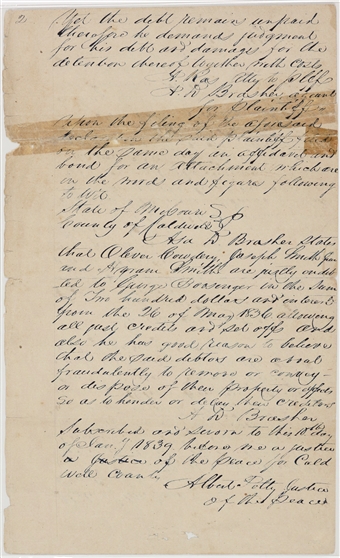 2.
Yet the debt remain unpaid
therefore he demands judgment
for his debt and damages for the
detention thereof together with costs
Petty & Plff
A D Brasher
for Plaintiff
Upon the filing of the aforesaid
the said plaintiff filed
on the same day an affidavit and
bond for an attachment which are
in the words and figures following
to wit
State of Missouri }
County of Caldwell }
Asa D Brasher states
that Oliver Cowdery Joseph Smith Jun
and Hyrum Smith are justly indeb
ted to George in the sum
of Two hundred dollars and interest
from the 26 of May 1836 allowing
all just credits and set offs and
also he has good reason to believe
that the said debtors are about
fraudulently to remove or convey
or dispose of their property or effects
so as to hinder or delay their creditors
A. D. Brasher
Subscribed and sworn to this 10th day
of Jany 1839 before me a justice
of the peace for Cald
well County
Albert Petty Justice
of the Peace